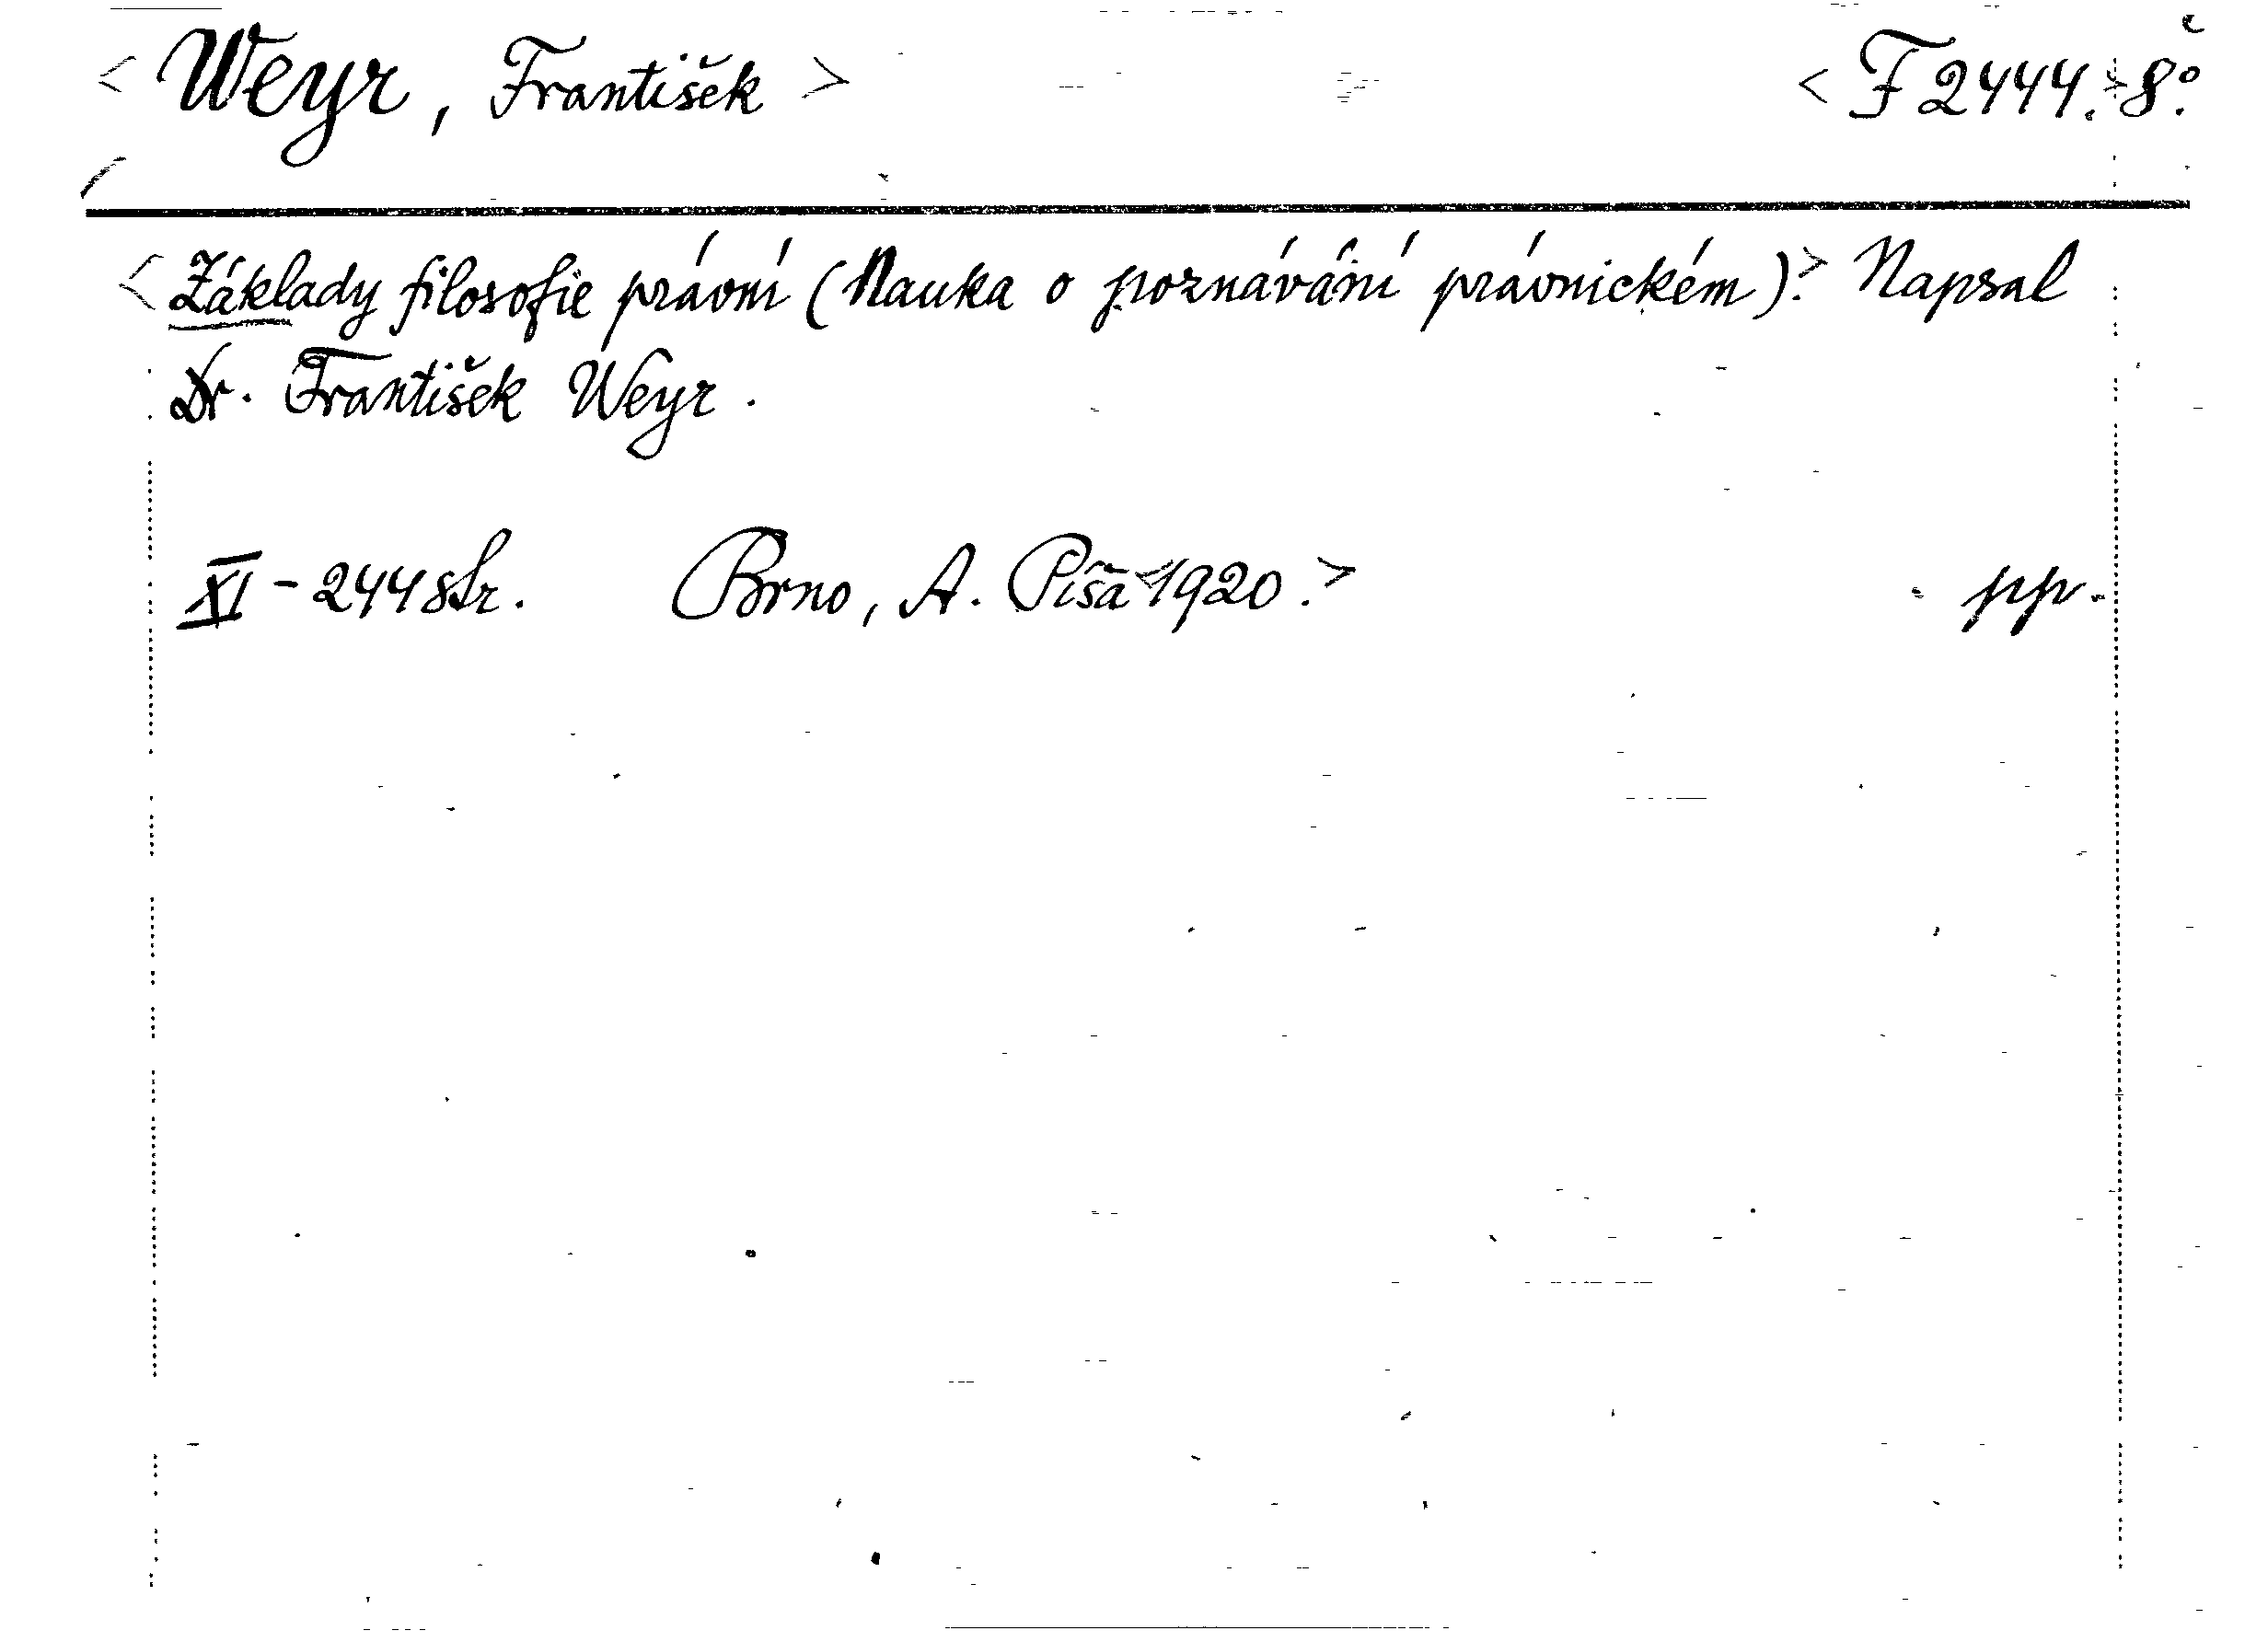 < Weyr, František > < F 2444. > 8°.
< Základy filosofie právní (Nauka o poznávání právnickém). > Napsal
Dr. František Weyr.
XI - 244 str. Brno, A. Píša < 1920. > pp.